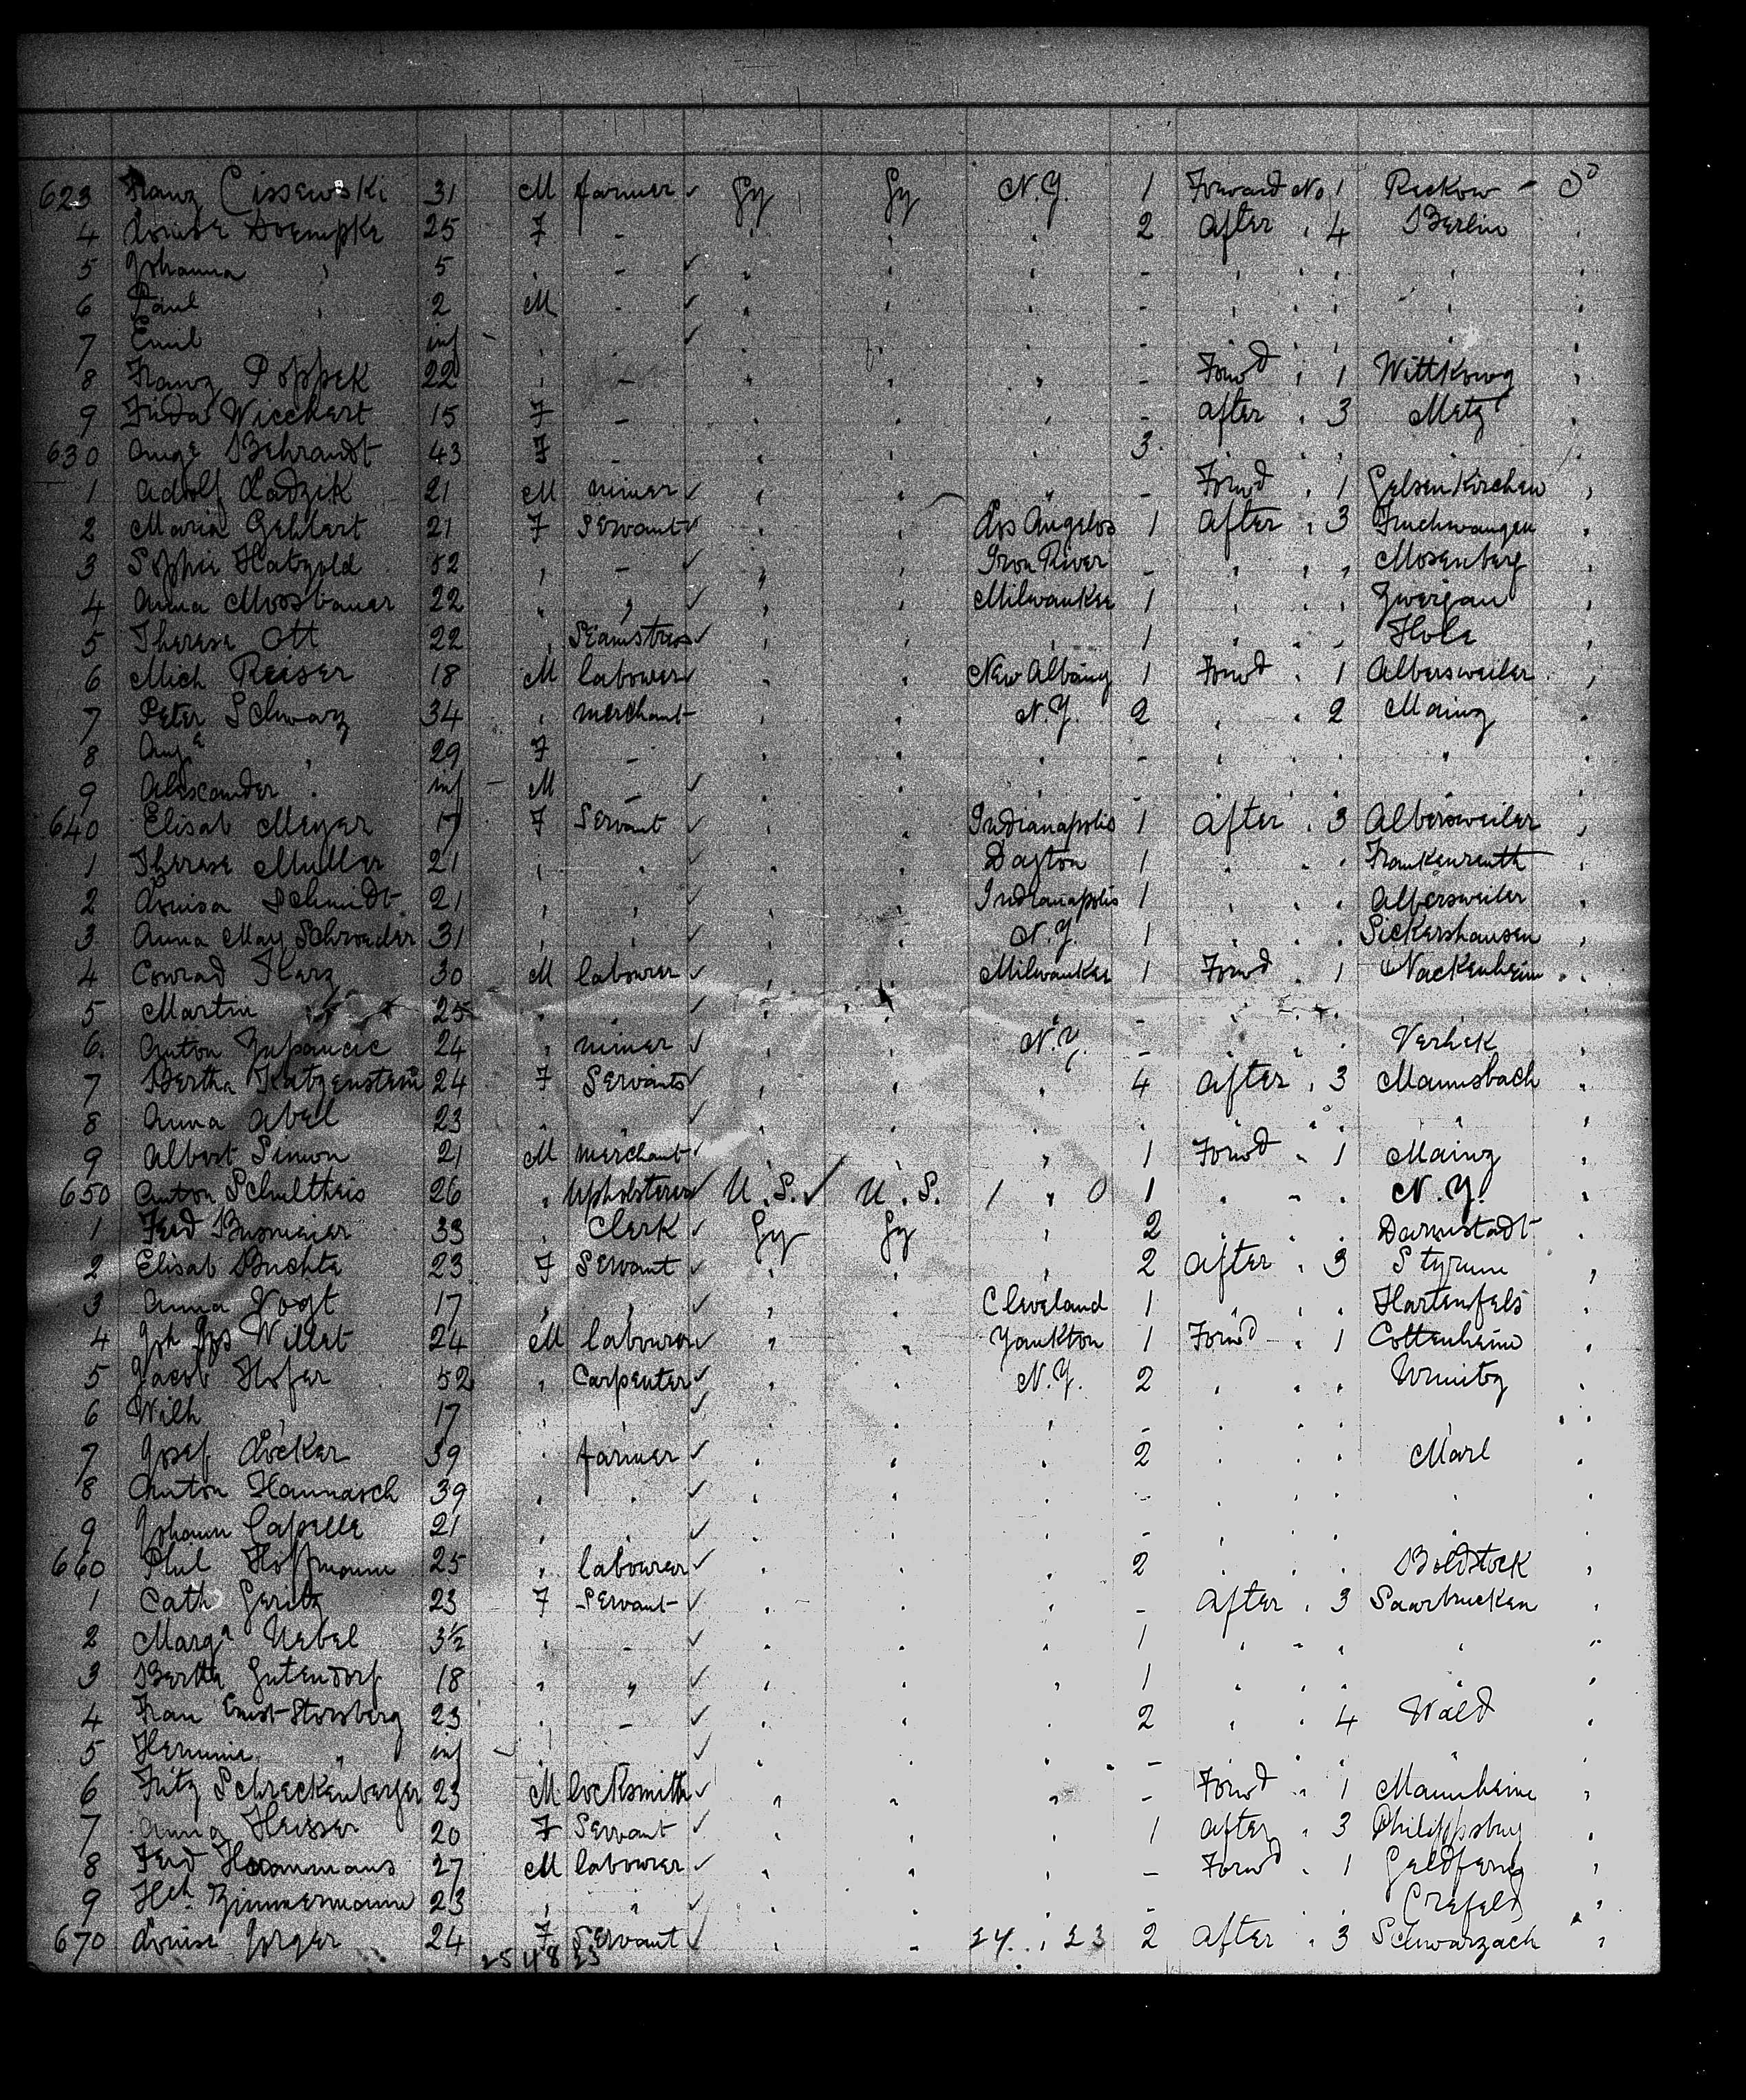 623 Franz Cissewski 31 M farmer ✓ Gy Gy N.Y. 1 Forward No 1 Reckow - Do
4 Louise Doempke 25 F - 2 After " 4 Berlin "
5 Johanna " 5 " - ✓ " " " - " " " " "
6 Paul " 2 M - ✓ " " " - " " " " "
7 Emil inf - " ✓ - " " " "
8 Franz Poppek 22 " - " " " - Forwd " 1 Wittkowo "
9 Frida Wieckert 15 F - " " " - After " 3 Metz "
630 Auge Behrandt 43 F - " " " 3 " " " "
1 Adolf Ladzik 21 M miner ✓ " " " - Forwd " 1 Gelsenkirchen "
2 Maria Gehlert 21 F Servant ✓ " " Los Angelos 1 After " 3 "
3 Sophie Hatzold 52 " - ✓ " " Iron River - " " " Mosenberg "
4 Anna Moosbauer 22 " " ✓ " " Milwaukee 1 " " " "
5 Therese Ott 22 " Seamstress ✓ " " " 1 " " " Hole "
6 Mich Reiser 18 M labourer ✓ " " New Albany 1 Forwd " 1 Albersweiler "
7 Peter Schwarz 34 " merchant " " N.Y. 2 " " 2 Mainz "
8 Auge " 29 F - " " " - " " " " "
9 Alexander " inf - M - ✓ " " " - " " " " "
640 Elisab Meyer 17 F Servant ✓ " " Indianapolis 1 After " 3 Albersweiler "
1 Therese Muller 21 " " ✓ " " Dayton 1 " " " Frankenreuth "
2 Louisa Schmidt 21 " " ✓ " " Indianapolis 1 " " " Albersweiler "
3 Anna May Schroeder 31 " " ✓ " " N.Y. 1 " " " Sickershausen "
4 Conrad Harz 30 M labourer ✓ " " Milwaukee 1 Forwd " 1 Nackenheim "
5 Martin " 25 " " ✓ " " " - " " " " "
6 Anton Zupancic 24 " miner ✓ " " N.Y. - " " " Verhek "
7 Bertha Katzenstein 24 F Servants ✓ " " " 4 After " 3 Mannsbach "
8 Anna Abel 23 " " ✓ " " " " " " " " "
9 Albert Simon 21 M merchant ✓ " 1 Forwd " 1 Mainz "
650 Anton Schultheis 26 " Upholsterer ✓ U.S. ✓ U.S. 1 " 0 1 " " " N.Y. "
1 Ferd Busmeier 33 " Clerk ✓ Gy Gy " 2 " " " Darmstadt "
2 Elisab Buchta 23 F Servant ✓ " " " 2 After " 3 Styrum "
3 Anna Vogt 17 " " ✓ " " Cleveland 1 " " " Hartenfels "
4 Joh Jos Willet 24 M labourer ✓ " " Yankton 1 Forwd " 1 Cottenheim "
5 Jacob Hofer 52 " Carpenter ✓ " " N.Y. 2 " " " "
6 Wilh " 17 " " ✓ " " " - " " " " "
7 Josef Löcker 39 " farmer ✓ " " " 2 " " " Marl "
8 Anton Hannasch 39 " " ✓ " " " - " " " " "
9 Johann Capelle 21 " " ✓ " " " - " " " " "
660 Phil Hoffmann 25 " labourer ✓ " " " 2 " " " "
1 Cath Geritz 23 F Servant " " " - After " 3 Saarbrucken "
2 Marga Nebel 3½ " - ✓ " " " 1 " " " " "
3 Bertha Gutendorf 18 " " ✓ " " " 1 " " " " "
4 Frau Ernst-Storsberg 23 " - ✓ " " " 2 " " 4 Wald "
5 Hermine " inf " ✓ " " " - " " " " "
6 Fritz Schreckenberger 23 M locksmith ✓ " " " - Forwd " 1 Mannheim "
7 Anna Heisser 20 F Servant ✓ " " " 1 After " 3 Philippsburg "
8 Ferd 27 M labourer ✓ " " " - Forwd " 1 "
9 Hch Zimmermann 23 " " ✓ " " " - " " " Crefeld "
670 Louise Jorger 24 F Servant ✓ " " 24 " 23 2 After " 3 Schwarzach "
25 48 23